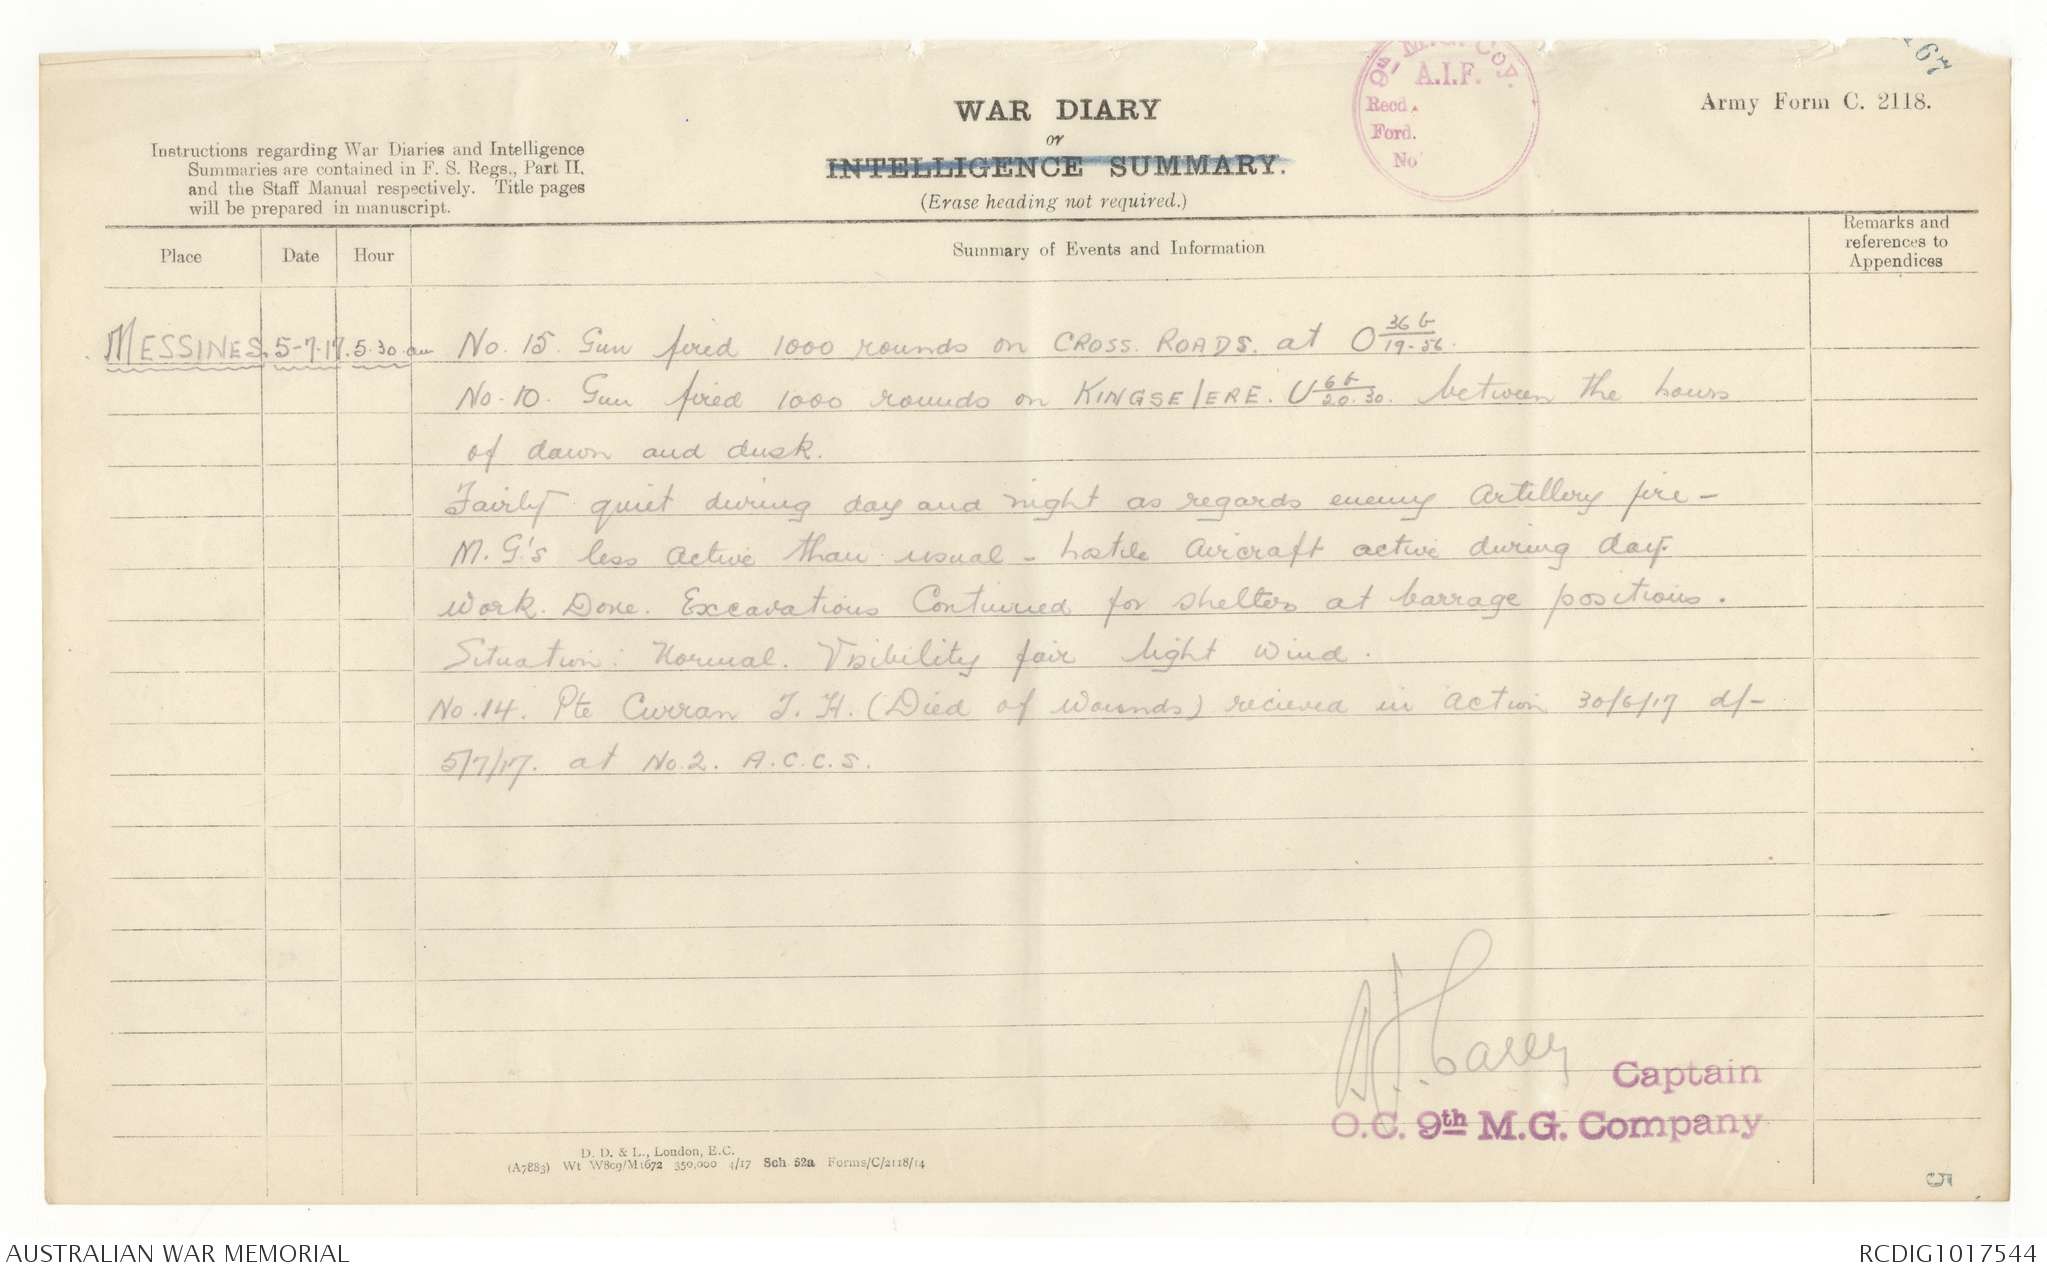 9th M.G. Coy.
A.I.F.
Recd.
Ford.
No
67
Army Form C. 2118.
WAR DIARY
or
INTELLIGENCE SUMMARY.
(Erase heading not required.)
Instructions regarding War Diaries and Intelligence
Summaries are contained in F. S. Regs., Part II.
and the Staff Manual respectively. Title pages
will be prepared in manuscript.
Place Date Hour Summary of Events and Information Remarks and references to Appendices
MESSINES. 5-7-17. 5.30 am No. 15 Gun fired 1000 rounds on CROSS ROADS. at O 36 b / 19.56.
No. 10. Gun fired 1000 rounds on KINGSELERE. U 6 b / 20.30. between the hours
of dawn and dusk.
Fairly quiet during day and night as regards enemy Artillery fire -
M.G's less active than usual - hostile Aircraft active during day.
Work. Done. Excavations Continued for shelters at barrage positions.
Situation: Normal. Visibility fair light wind.
No. 14. Pte Curran T. H. (Died of Wounds) recieved in Action 30/6/17 d/-
5/7/17. at No. 2. A.C.C.S.
Casey
Captain
O.C. 9th M.G. Company
D. D. & L., London, E.C.
(A7883) Wt W809/M1672 350,000 4/17 Sch 52a Forms/C/2118/14
5
AUSTRALIAN WAR MEMORIAL RCDIG1017544